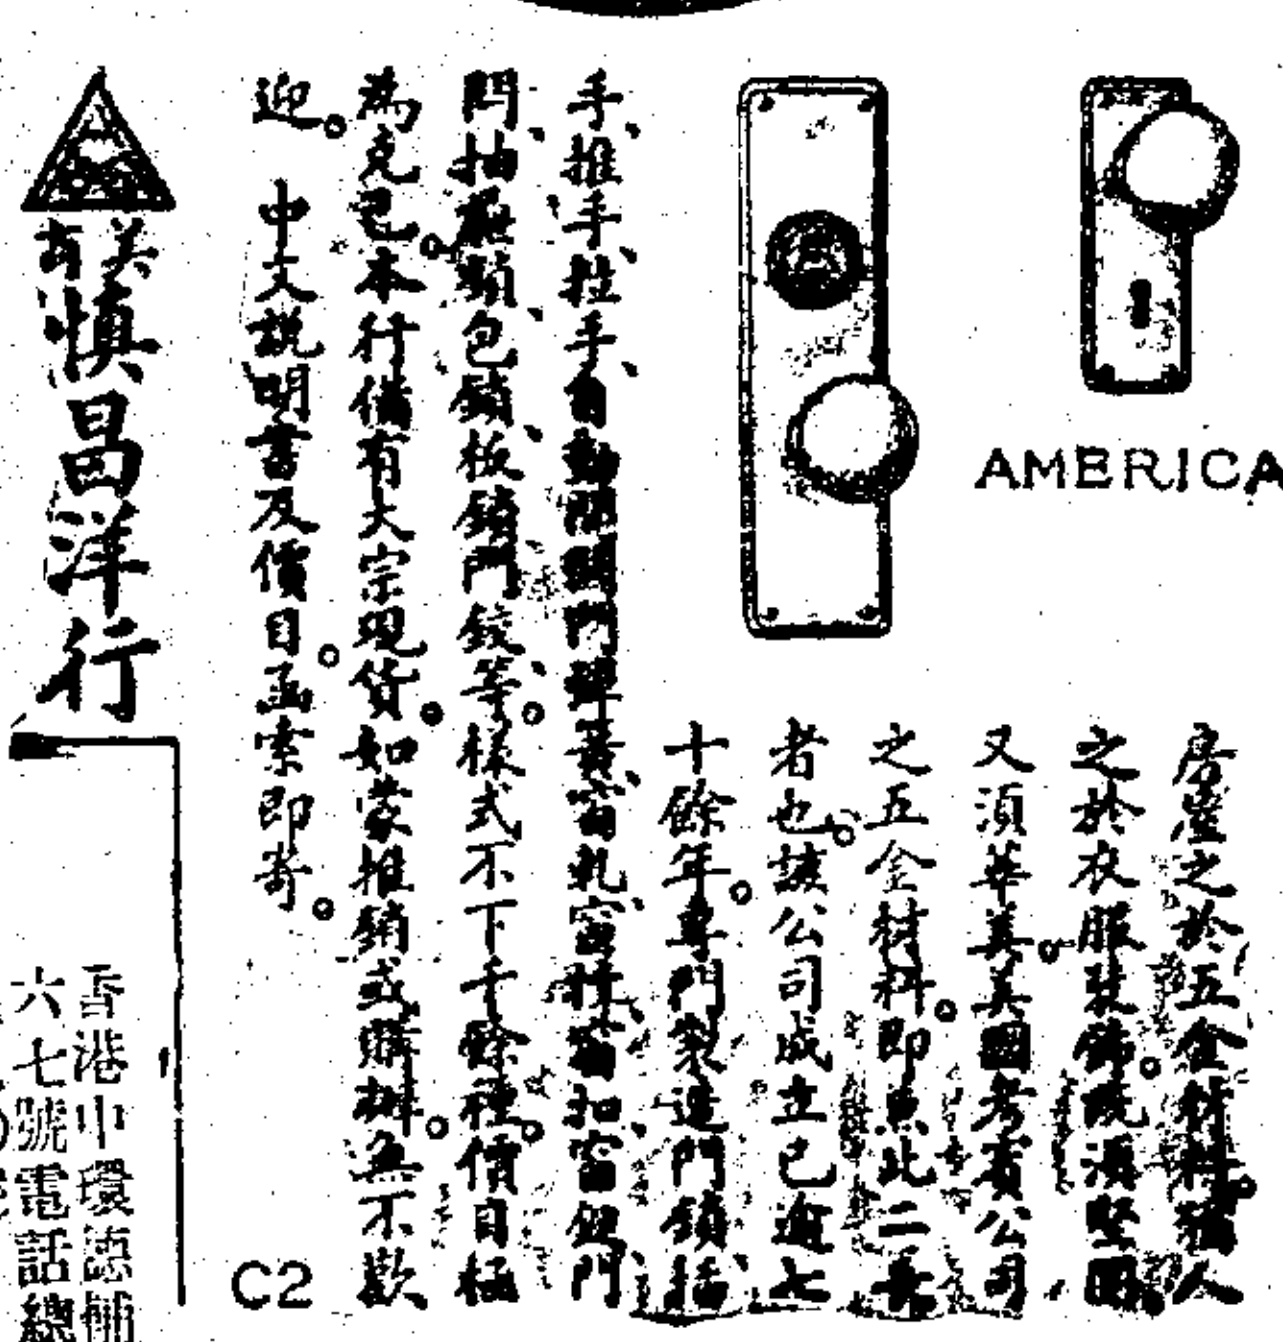 AMERICA
房屋之於五金材料猶人
之於衣服裝飾既須堅固
又須華美美國考賓公司
之五金材料即兼此二長
者也該公司成立已逾七
十餘年專門製造門鎖插
手推手拉手自動關門彈簧窗軋窗
門抽屜頭包鎖板鎖門鉸等樣式不下千餘種價目極
為克己本行備有大宗現貨如蒙推銷或購辦無不歡
迎 中文說明書及價目函索即寄
美商
慎昌洋行
香港中環德輔
六七號電話總
C2